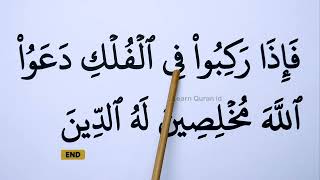 فَإِذَا رَكِبُوا۟ فِى ٱلْفُلْكِ دَعَوُا۟
Learn Quran id
ٱللَّهَ مُخْلِصِينَ لَهُ ٱلدِّينَ
END